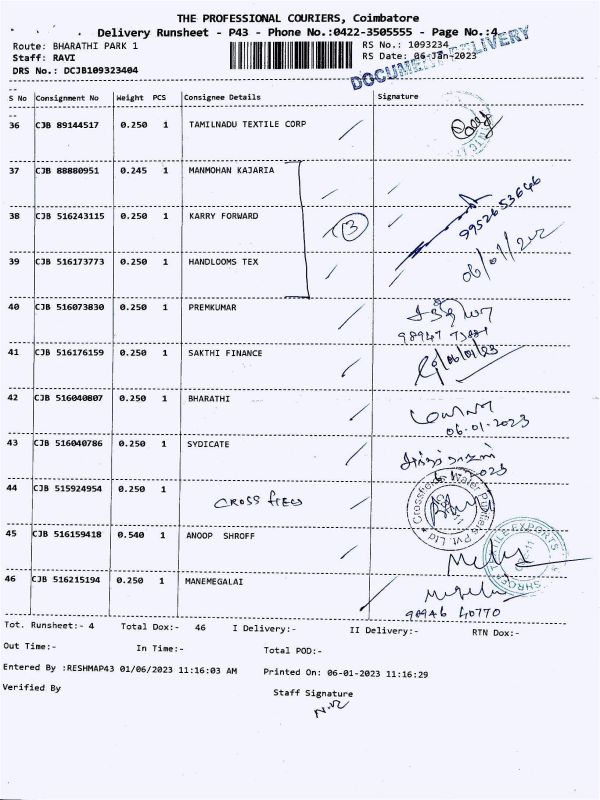 THE PROFESSIONAL COURIERS, Coimbatore
Delivery Runsheet - P43 - Phone No.:0422-3505555 - Page No.:4
Route: BHARATHI PARK 1
RS No.: 1093234
Staff: RAVI
RS Date: 06-Jan-2023
DRS No.: DCJB109323404
DOCUMENT DELIVERY
S No Consignment No Weight PCS Consignee Details Signature
36 CJB 89144517 0.250 1 TAMILNADU TEXTILE CORP
37 CJB 88880951 0.245 1 MANMOHAN KAJARIA
38 CJB 516243115 0.250 1 KARRY FORWARD 3 9952653646
39 CJB 516173773 0.250 1 HANDLOOMS TEX 06/01/202
40 CJB 516073830 0.250 1 PREMKUMAR
98947
41 CJB 516176159 0.250 1 SAKTHI FINANCE 06/01/23
42 CJB 516040807 0.250 1 BHARATHI
06-01-2023
43 CJB 516040786 0.250 1 SYDICATE
44 CJB 515924954 0.250 1 CROSS fields Crossfields Water Purifiers Pvt. Ltd
45 CJB 516159418 0.540 1 ANOOP SHROFF SHROFF TEXTILE EXPORTS
46 CJB 516215194 0.250 1 MANEMEGALAI
98946 40770
Tot. Runsheet:- 4 Total Dox:- 46 I Delivery:- II Delivery:- RTN Dox:-
Out Time:- In Time:- Total POD:-
Entered By :RESHMAP43 01/06/2023 11:16:03 AM Printed On: 06-01-2023 11:16:29
Verified By Staff Signature